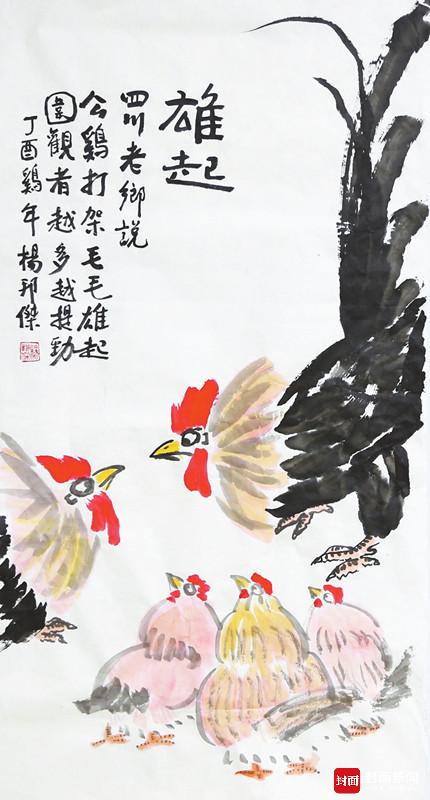 雄起
四川老鄉説
公鷄打架毛毛雄起
圍觀者越多越提勁
丁酉鷄年楊邦傑
封面
封面新闻